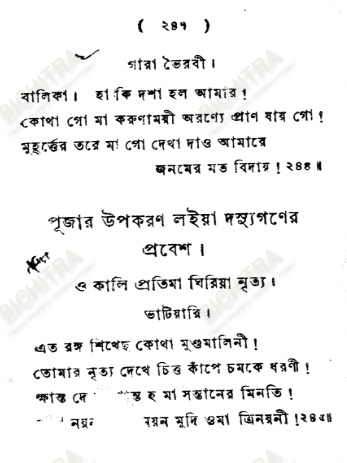 ( ২৪৭ )
গারা ভৈরবী ।
বালিকা । হা কি দশা হল আমার !
কোথা গো মা করুণাময়ী অরণ্যে প্রাণ যায় গো !
মুহূর্ত্তের তরে মা গো দেখা দাও আমারে
জনমের মত বিদায় ! ২৪৪॥
পূজার উপকরণ লইয়া দস্যুগণের
প্রবেশ ।
ও কালি প্রতিমা ঘিরিয়া নৃত্য ।
ভাটিয়ারি ।
এত রঙ্গ শিখেছ কোথা মুণ্ডমালিনী !
তোমার নৃত্য দেখে চিত্ত কাঁপে চমকে ধরণী !
ক্ষান্ত দে হ মা সন্তানের মিনতি !
নয়ন মুদি ওমা ত্রিনয়নী !২৪৫॥
BICHITRA